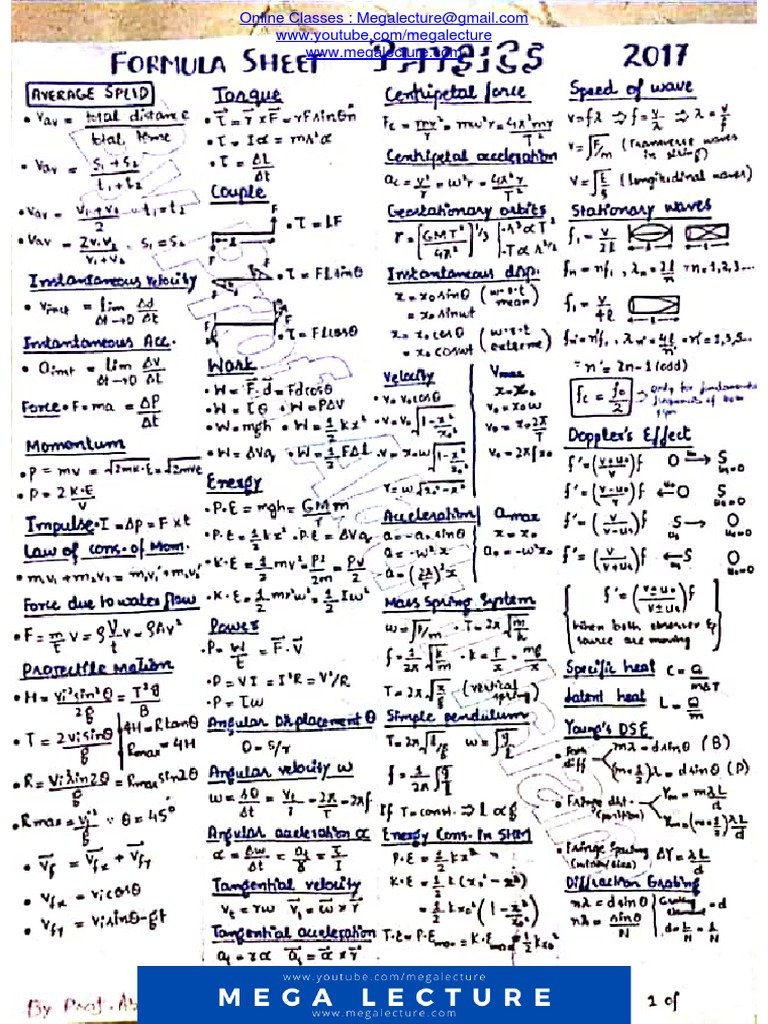 Online Classes : Megalecture@gmail.com
www.youtube.com/megalecture
www.megalecture.com
FORMULA SHEET PHYSICS 2017
AVERAGE SPEED
• Vav = total distance / total time
• Vav = S₁+S₂ / t₁+t₂
• Vav = V₁+V₂ / 2 t₁=t₂
• Vav = 2V₁V₂ / V₁+V₂ S₁=S₂
Instantaneous velocity
• Vinst = lim Δt→0 Δd/Δt
Instantaneous Acc.
• ainst = lim Δt→0 ΔV/Δt
Force • F = ma = ΔP/Δt
Momentum
• P = mv = √2mK.E
• P = 2 K.E / V
Impulse • I = ΔP = F×t
Law of cons. of Mom.
• m₁v₁ + m₂v₂ = m₁v₁' + m₂v₂'
Force due to water flow
• F = m/t v = ρ V/t v = ρAv²
Projectile Motion
• H = Vi² sin²θ / 2g = T²g / 8
• T = 2Vi sinθ / g
4H = R tanθ
Rmax = 4H
• R = Vi² sin2θ / g = Rmax sin2θ
• Rmax = Vi² / g ∵ θ = 45°
• Vf = Vfx + Vfy
• Vfx = Vi cosθ
• Vfy = Vi sinθ - gt
Torque
• τ = r × F = rF sinθ n
• τ = Iα = mr²α
• τ = ΔL/Δt
Couple
F
F
• τ = lF
• τ = Fl sinθ
F
F
• τ = Fl cosθ
Work
• W = F . d = Fd cosθ
• W = τθ • W = PΔV
• W = mgh • W = 1/2 kx²
• W = ΔVq • W = 1/2 FΔl
Energy
• P.E = mgh = GMm / r
• P.E = 1/2 kx² • P.E = ΔVq
• K.E = 1/2 mv² = P²/2m = Pv/2
• K.E = 1/2 mr²ω² = 1/2 Iω²
Power
• P = W/t = F . V
• P = VI = I²R = V²/R
• P = τω
Angular Displacement θ
θ = S/r
Angular velocity ω
ω = Δθ/Δt = Vt/r = 2π/T = 2πf
Angular acceleration α
α = Δω/Δt = at/r = τ/I
Tangential velocity
Vt = rω Vt = ω × r
Tangential acceleration
at = rα at = α × r
Centripetal force
Fc = mv²/r = mω²r = 4π²mr / T²
Centripetal acceleration
ac = v²/r = ω²r = 4π²r / T²
Geostationary orbits
r = [GMT² / 4π²]^1/3
• r³ ∝ T²
• T ∝ r^3/2
Instantaneous disp.
x = x₀ sinθ (w.r.t mean)
= x₀ sinωt
x = x₀ cosθ (w.r.t extreme)
= x₀ cosωt
Velocity
• V = V₀ cosθ
• V = V₀ √1 - x²/x₀²
• V = x₀ω √1 - x²/x₀²
V = ω √x₀² - x²
Vmax
x = x₀
V₀ = x₀ω
V₀ = x₀ 2π/T
V₀ = 2πf x₀
Acceleration
a = -a₀ sinθ
a = -ω²x
a = (2π/T)² x
amax
x = x₀
a₀ = -ω²x₀
Mass Spring System
ω = √k/m • T = 2π √m/k
f = 1/2π √k/m • k = F/x = mg/x
T = 2π √x/g (vertical spring)
Simple pendulum
T = 2π √l/g ω = √g/l
f = 1/2π √g/l
If T = const. ⇒ l ∝ g
Energy Cons. In SHM
P.E = 1/2 kx²
K.E = 1/2 k(x₀² - x²)
= 1/2 kx₀² (1 - x²/x₀²)
T.E = P.Emax = K.Emax = 1/2 kx₀²
Speed of wave
v = fλ ⇒ f = v/λ ⇒ λ = v/f
v = √F/m (Transverse waves in string)
v = √E/ρ (longitudinal waves)
Stationary waves
f₁ = v/2l
fn = nf₁, λn = 2l/n ∵ n = 1,2,3...
f₁ = v/4l
fn' = n'f₁, λn' = 4l/n' ∵ n' = 1,3,5...
∵ n' = 2n-1 (odd)
fc = fo / 2
Doppler's Effect
f' = (v+u₀ / v) f
f' = (v-u₀ / v) f
f' = (v / v-us) f
f' = (v / v+us) f
f' = (v±u₀ / v±us) f
When both observer & source are moving
Specific heat C = Q / mΔT
Latent heat L = Q/m
Young's DSE
• Path diff
mλ = d sinθ (B)
(m+1/2)λ = d sinθ (D)
• Fringe dist. (position)
Ym = mλL/d
Ym = (m+1/2) λL/d
• Fringe Spacing ΔY = λL/d
Diffraction Grating
nλ = d sinθ
nλ = sinθ / N
Grating element = d
d = L/N
By Prof.
www.youtube.com/megalecture
MEGA LECTURE
www.megalecture.com
1 of